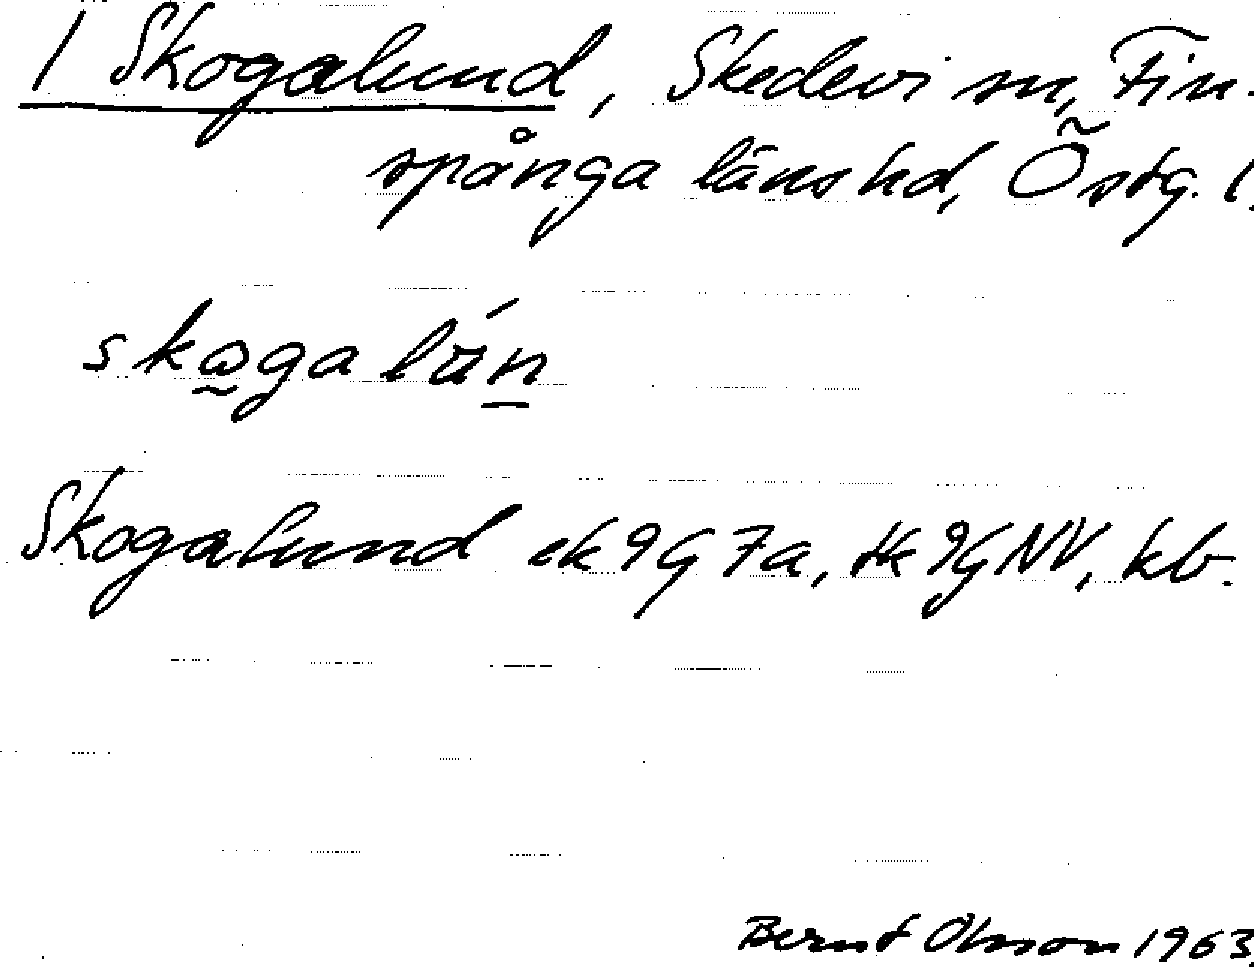 1 Skogalund, Skedevi sn, Fin-
spånga länshd, Östg. l.
skogalún
Skogalund ek 9G 7a, tk 9G NV, kb.
Bernt Olsson 1963.